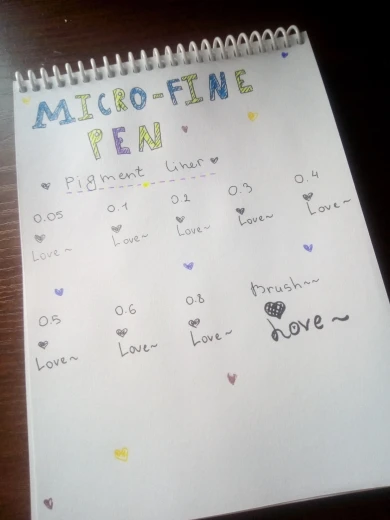 MICRO-FINE
PEN
Pigment liner
0.05 0.1 0.2 0.3 0.4
Love~ Love~ Love~ Love~ Love~
0.5 0.6 0.8 Brush~~
Love~ Love~ Love~ Love~